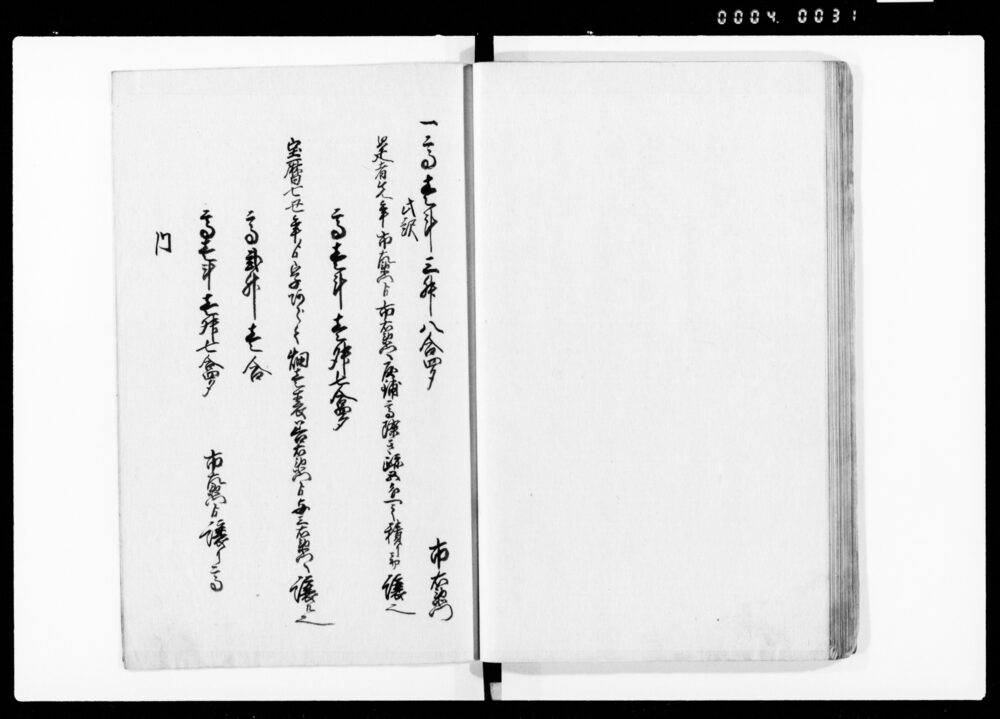 0004 0031
一高壱斗三升八合四夕
市右衛門
此訳
是者先年市左衛門ゟ市右衛門へ屋舗高 積り 譲之
高壱斗壱升七合四夕
宝暦七丑年ゟ字 畑壱表 右衛門ゟ与三右衛門へ譲之
高弐升壱合
高壱斗壱升七合四夕
市左衛門ゟ譲り高
〆